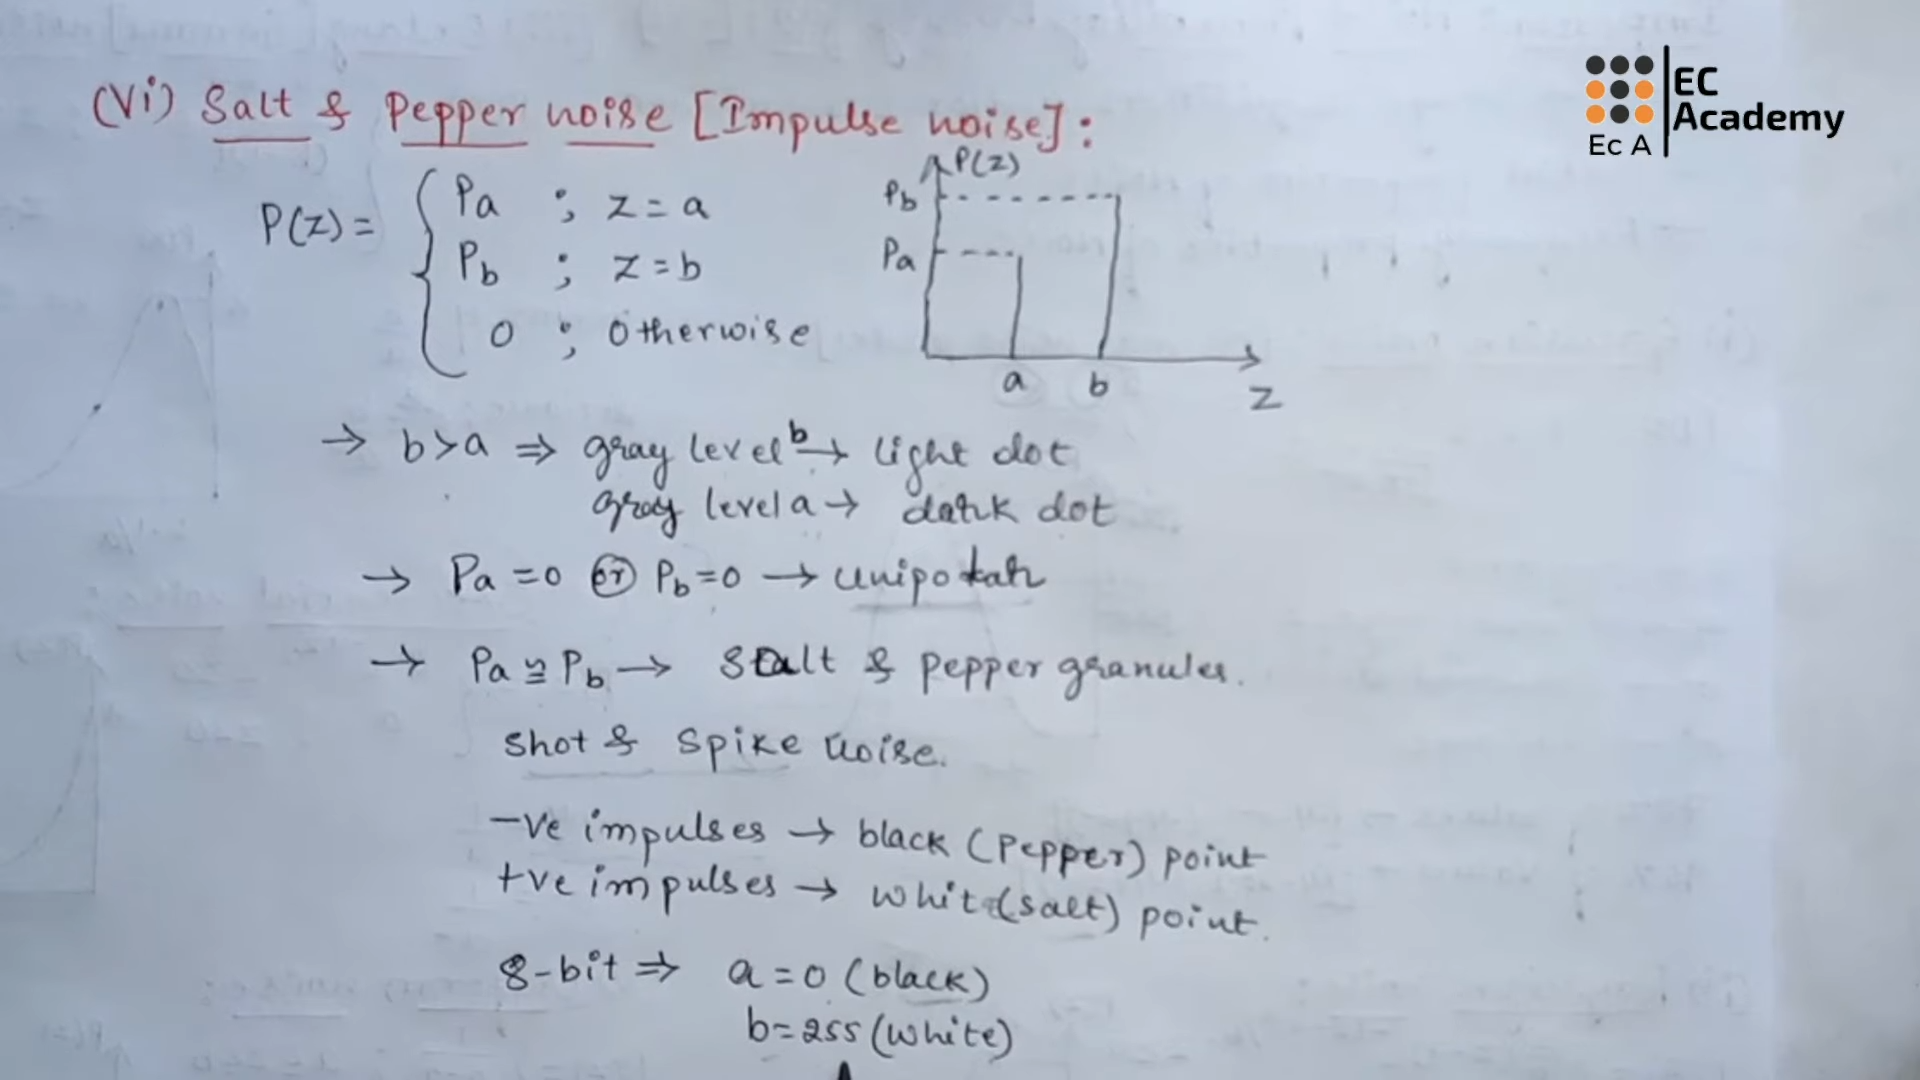 (vi) Salt & Pepper noise [Impulse noise] :
EC
Academy
Ec A
P(z) = { Pa ; z = a
Pb ; z = b
0 ; otherwise
P(z)
Pb
Pa
a b
z
→ b>a ⇒ gray level b → light dot
gray level a → dark dot
→ Pa = 0 or Pb = 0 → unipolar
→ Pa ≅ Pb → Salt & pepper granules.
shot & spike noise.
-ve impulses → black (Pepper) point
+ve impulses → whit (salt) point.
8-bit ⇒ a = 0 (black)
b = 255 (white)